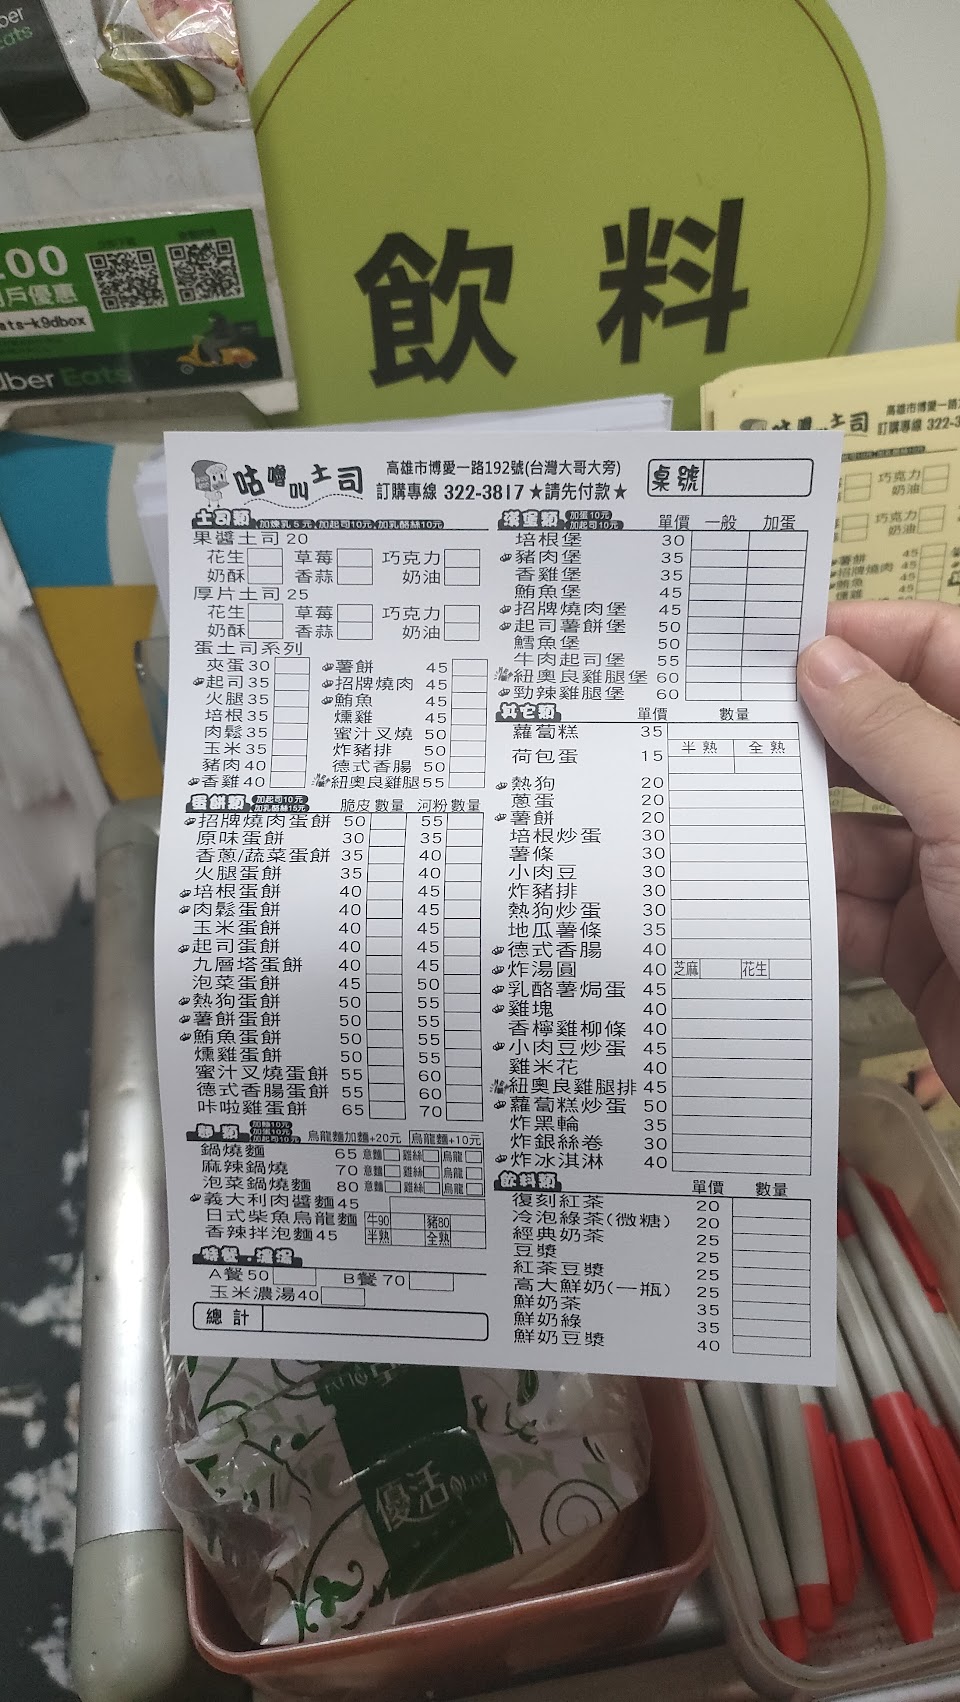 ber
ats
.00
戶優惠
ats-k9dbox
Uber Eats
飲料
咕嚕叫土司
高雄市博愛一路192號(台灣大哥大旁)
訂購專線 322-3817★請先付款★
桌號
土司類 加煉乳5元,加起司10元,加乳酪絲10元
果醬土司20
花生 草莓 巧克力
奶酥 香蒜 奶油
厚片土司25
花生 草莓 巧克力
奶酥 香蒜 奶油
蛋土司系列
夾蛋30 薯餅 45
起司35 招牌燒肉 45
火腿35 鮪魚 45
培根35 燻雞 45
肉鬆35 蜜汁叉燒 50
玉米35 炸豬排 50
豬肉40 德式香腸 50
香雞40 紐奧良雞腿55
蛋餅類 加起司10元 加乳酪絲15元 脆皮 數量 河粉 數量
招牌燒肉蛋餅 50 55
原味蛋餅 30 35
香蔥/蔬菜蛋餅 35 40
火腿蛋餅 35 40
培根蛋餅 40 45
肉鬆蛋餅 40 45
玉米蛋餅 40 45
起司蛋餅 40 45
九層塔蛋餅 40 45
泡菜蛋餅 45 50
熱狗蛋餅 50 55
薯餅蛋餅 50 55
鮪魚蛋餅 50 55
燻雞蛋餅 50 55
蜜汁叉燒蛋餅 55 60
德式香腸蛋餅 55 60
咔啦雞蛋餅 65 70
麵類 加麵10元 加蛋10元 加起司10元 烏龍麵加麵+20元 烏龍麵+10元
鍋燒麵 65 意麵 雞絲 烏龍
麻辣鍋燒 70 意麵 雞絲 烏龍
泡菜鍋燒麵 80 意麵 雞絲 烏龍
義大利肉醬麵45
日式柴魚烏龍麵 牛90 豬80
香辣拌泡麵45 半熟 全熟
特餐.濃湯
A餐50 B餐70
玉米濃湯40
總計
漢堡類 加蛋10元 加起司10元 單價 一般 加蛋
培根堡 30
豬肉堡 35
香雞堡 35
鮪魚堡 45
招牌燒肉堡 45
起司薯餅堡 50
鱈魚堡 50
牛肉起司堡 55
紐奧良雞腿堡 60
勁辣雞腿堡 60
其它類 單價 數量
蘿蔔糕 35
荷包蛋 15 半熟 全熟
熱狗 20
蔥蛋 20
薯餅 20
培根炒蛋 30
薯條 30
小肉豆 30
炸豬排 30
熱狗炒蛋 30
地瓜薯條 35
德式香腸 40
炸湯圓 40 芝麻 花生
乳酪薯焗蛋 45
雞塊 40
香檸雞柳條 40
小肉豆炒蛋 45
雞米花 40
紐奧良雞腿排 45
蘿蔔糕炒蛋 50
炸黑輪 35
炸銀絲卷 30
炸冰淇淋 40
飲料類 單價 數量
復刻紅茶 20
冷泡綠茶(微糖) 20
經典奶茶 25
豆漿 25
紅茶豆漿 25
高大鮮奶(一瓶) 25
鮮奶茶 35
鮮奶綠 35
鮮奶豆漿 40
土司
高雄市博愛一路
訂購專線 322-3
巧克力
奶油
巧克力
奶油
薯餅 45
招牌燒肉 45
鮪魚 45
燻雞 45
優活